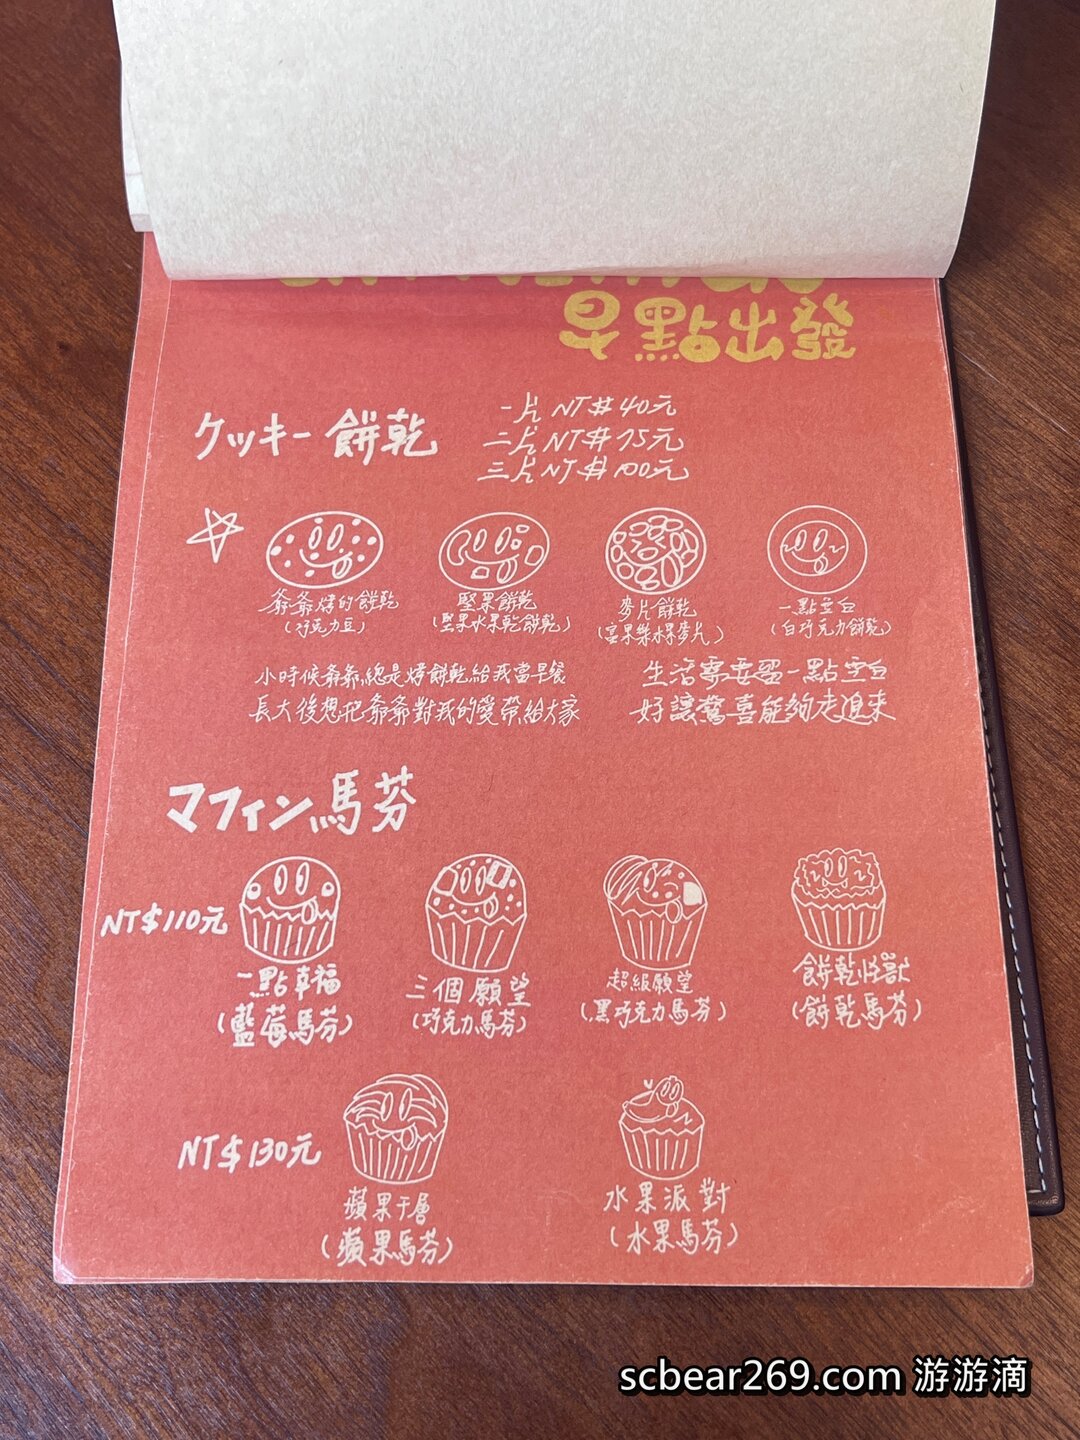 早點出發
クッキー 餅乾
一片 NT$40元
二片 NT$75元
三片 NT$100元
爺爺烤的餅乾
(巧克力豆)
堅果餅乾
(堅果水果乾餅乾)
麥片餅乾
一點空白
(白巧克力餅乾)
小時候爺爺總是烤餅乾給我當早餐
長大後想把爺爺對我的愛帶給大家
生活需要留一點空白
好讓驚喜能夠走進來
マフィン馬芬
NT$110元
一點幸福
(藍莓馬芬)
三個願望
(巧克力馬芬)
超級願望
(黑巧克力馬芬)
餅乾怪獸
(餅乾馬芬)
NT$130元
蘋果千層
(蘋果馬芬)
水果派對
(水果馬芬)
scbear269.com 游游滴